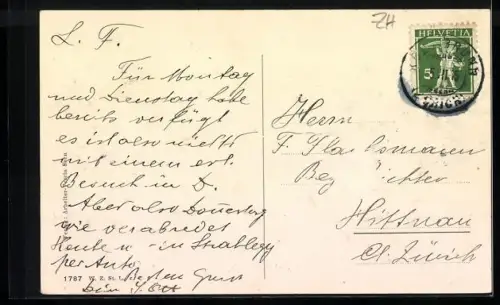 ZH
L. F.
Für Montag
und Dienstag habe
bereits verfügt
es ist also nichts
mit einem ev.
Besuch in D.
Aber also Donnerstag
wie verabredet
Heute n - in Strahlegg
per Auto
Besten Gruss
Dein
1787 W. Z. St.
HELVETIA
5
Herrn
F.
Bez
Hittnau
Ct. Zürich